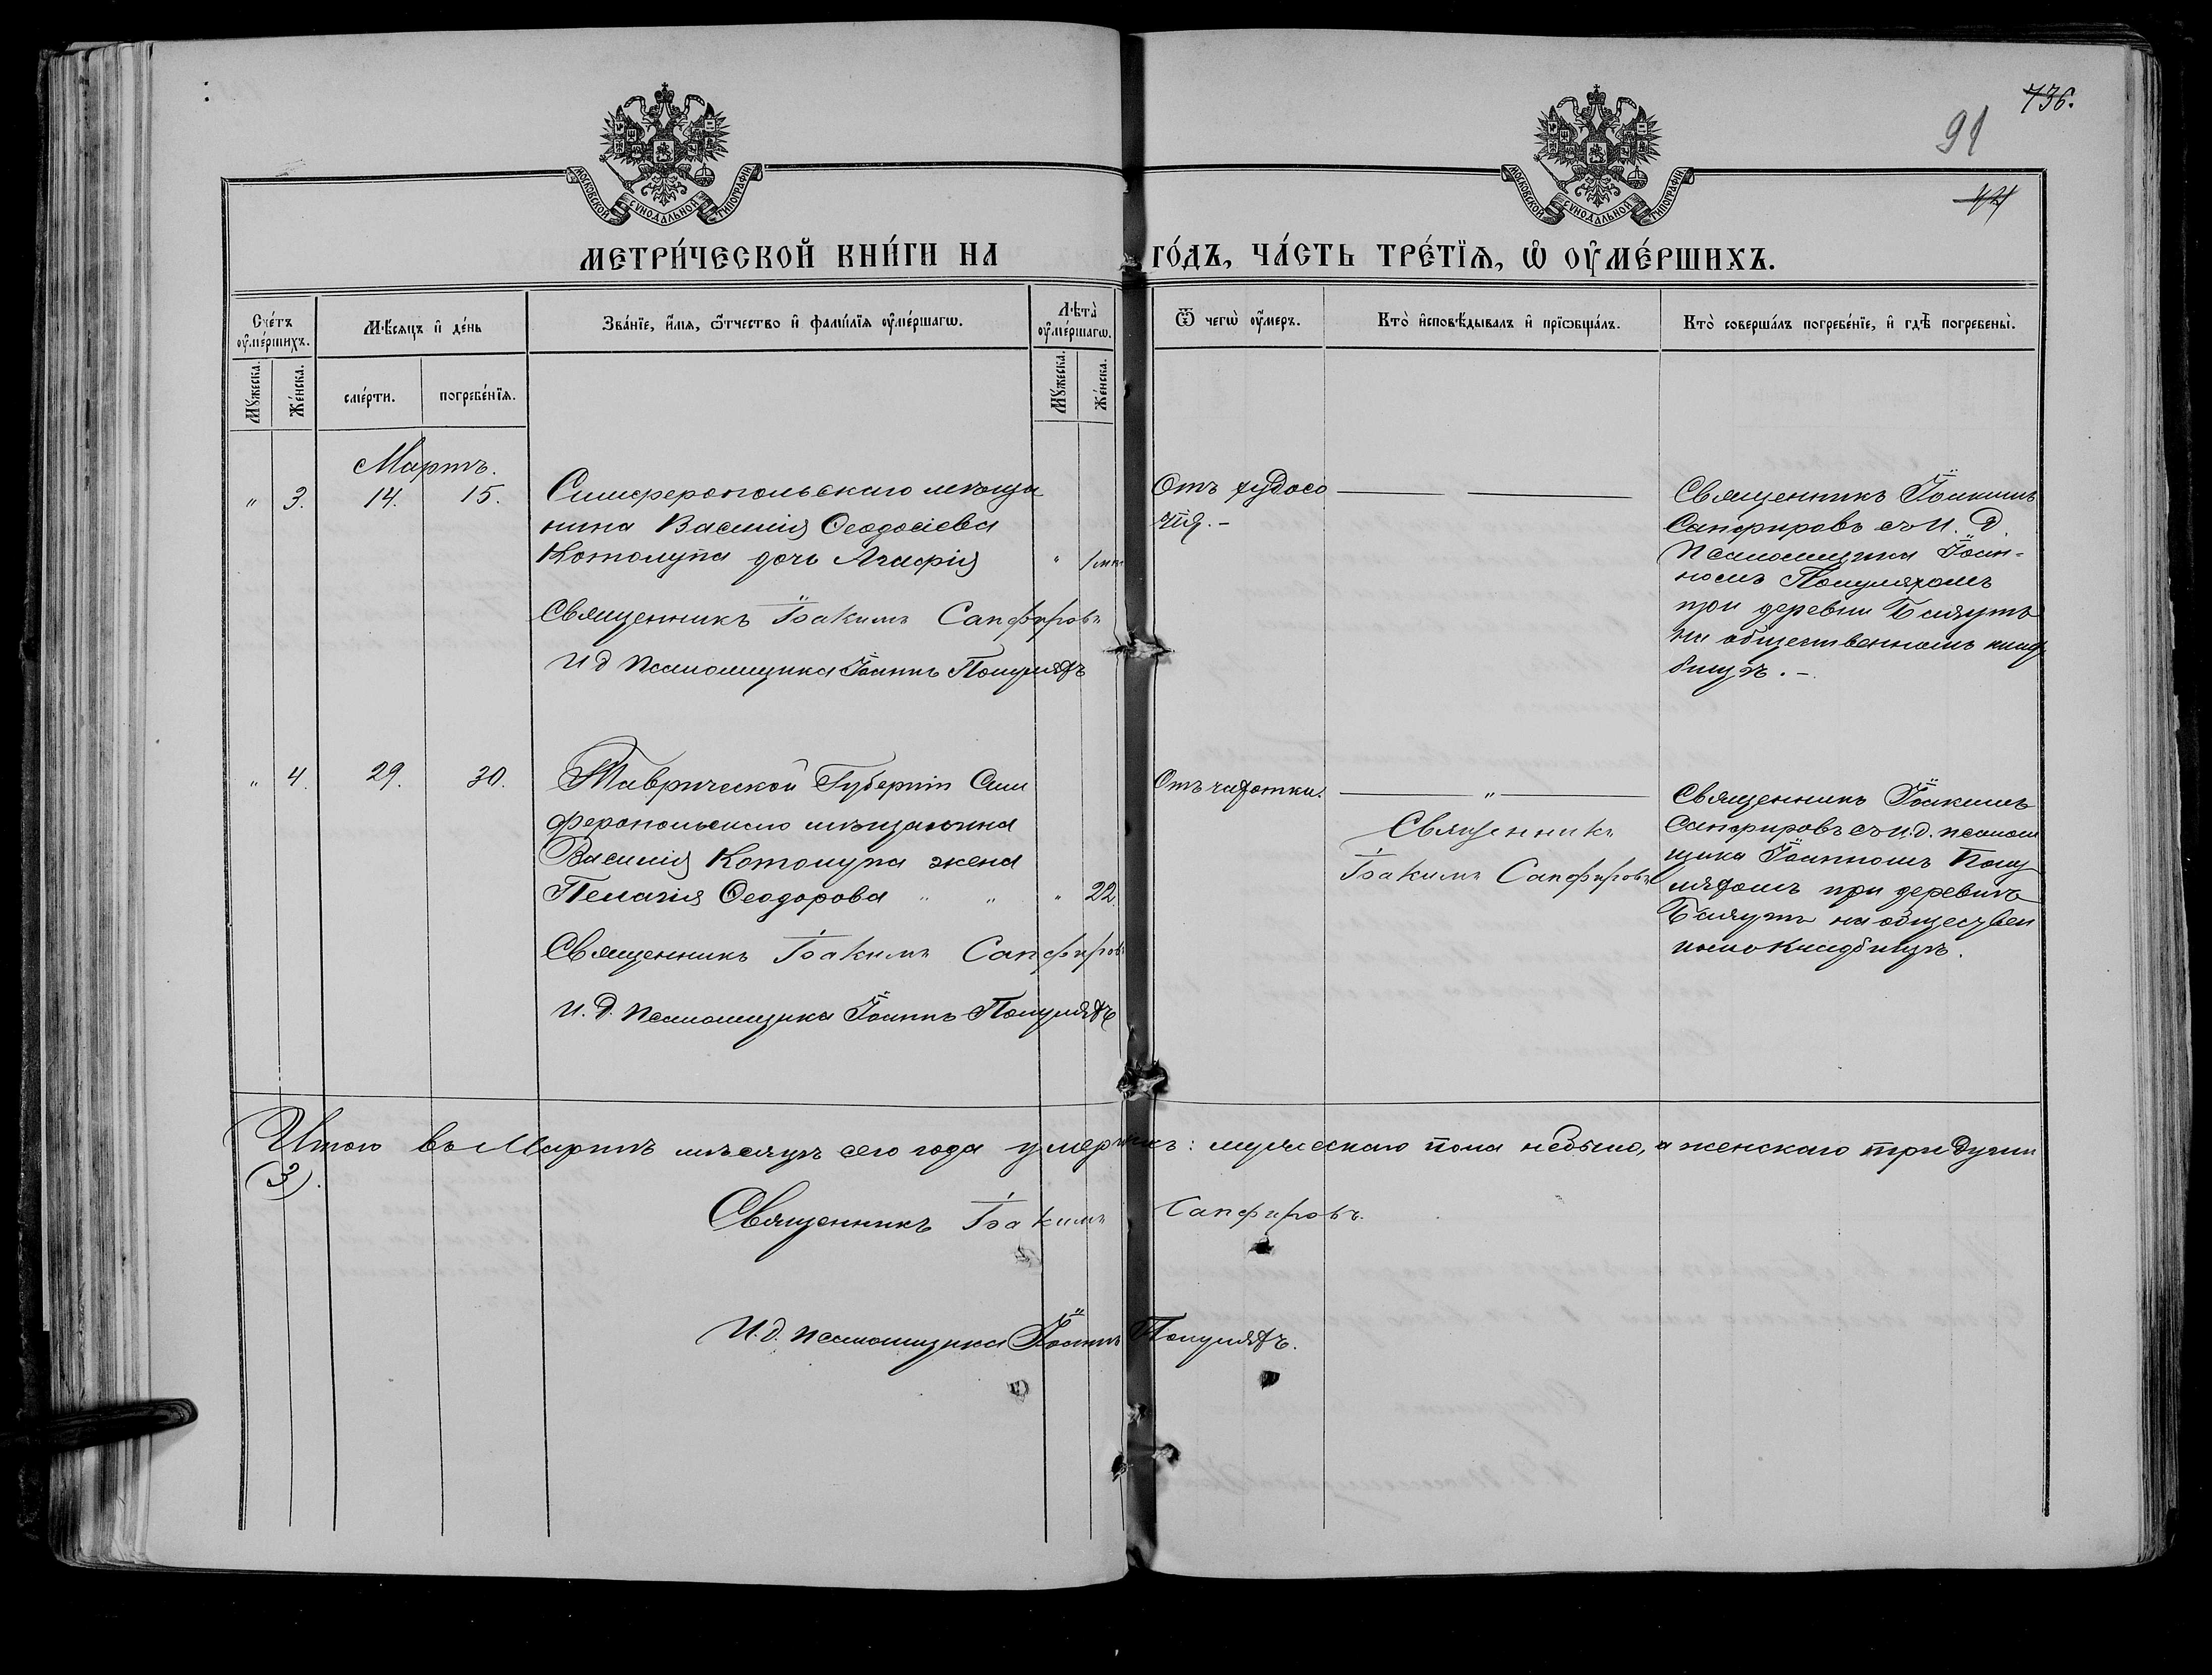 736.
91
МОСКОВСКОЙ СѴНОДАЛЬНОЙ ТИПОГРАФІИ
МОСКОВСКОЙ СѴНОДАЛЬНОЙ ТИПОГРАФІИ
МЕТРИ́ЧЕСКОЙ КНИ́ГИ НА ГО́ДЪ, ЧА́СТЬ ТРЕ́ТЇѦ, Ѡ ОУМЕ́РШИХЪ.
Сче́тъ оуме́ршихъ.
Мꙋ́жеска.
Же́нска.
Мѣ́сѧцъ и де́нь
сме́рти.
погребе́нїѧ.
Зва́нїе, и́мѧ, ѻ́тчество и фами́лїѧ оуме́ршагѡ.
Лѣта̀ оуме́ршагѡ.
Мꙋ́жеска.
Же́нска.
Ѿ чегѡ̀ оу́меръ.
Кто̀ и҆сповѣ́дывалъ и҆ прїѡбща́лъ.
Кто̀ соверша́лъ погребе́нїе, и҆ гдѣ̀ погребены̀.
Мартъ.
" 3. 14. 15.
Симферопольскаго мѣща
нина Василія Ѳеодосіева
Котолупа дочь Агафія " 1 м
Священникъ Іоакимъ Сапфировъ
И д псаломщика Іоаннъ Полулях
Отъ худосо
чія. –
Священникъ Іоакимъ
Сапфировъ съ и. д.
псаломщика Іоан-
номъ
при деревни Бчяутъ
на общественномъ клад
бищѣ. –
" 4. 29. 30.
Таврической Губерніи Сим
феропольскаго мѣщанина
Василія Котолупа жена
Пелагія Ѳеодорова " " " 22.
Священникъ Іоакимъ Сапфировъ
И. д. псаломщика Іоаннъ
Отъ чахотки.
"
Священникъ
Іоакимъ Сапфировъ
Священникъ Іоакимъ
Сапфировъ съ и. д. псалом
щика Іоанномъ Полу
ляхомъ при деревнѣ
на обществен
номъ кладбищѣ.
Итого въ Мартѣ мѣсяцѣ сего года умершихъ: мужескаго пола небыло, а женскаго три души
(3).
Священникъ Іоакимъ Сапфировъ.
И. д. псаломщика Іоаннъ